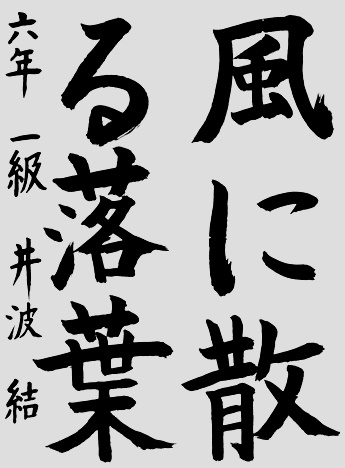 風に散
る落葉
六年 一級 井波 結